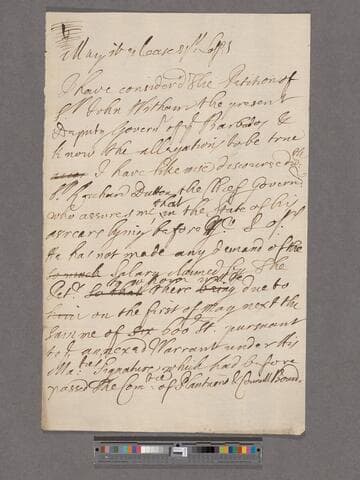 May it please yr. Lopps
I have considered the Petition of
Sr. John Witham the present
Deputy Governr. of ye Barbados, &
know the allegation to be true
I have likewise discoursed wth
Sr. Richard Dutton the Chief Governr.
who assures me that in the State of his
arrears lying before yr Lopps
He has not made any demand of the
Salary claimed by the
Petr. to whom there is due to
on the first of May next the
Summe of 600 pursuant
to ye annexed Warrant under His
Maties Signature which had before
passed the Comtee. of Plantacons & Councill Board.